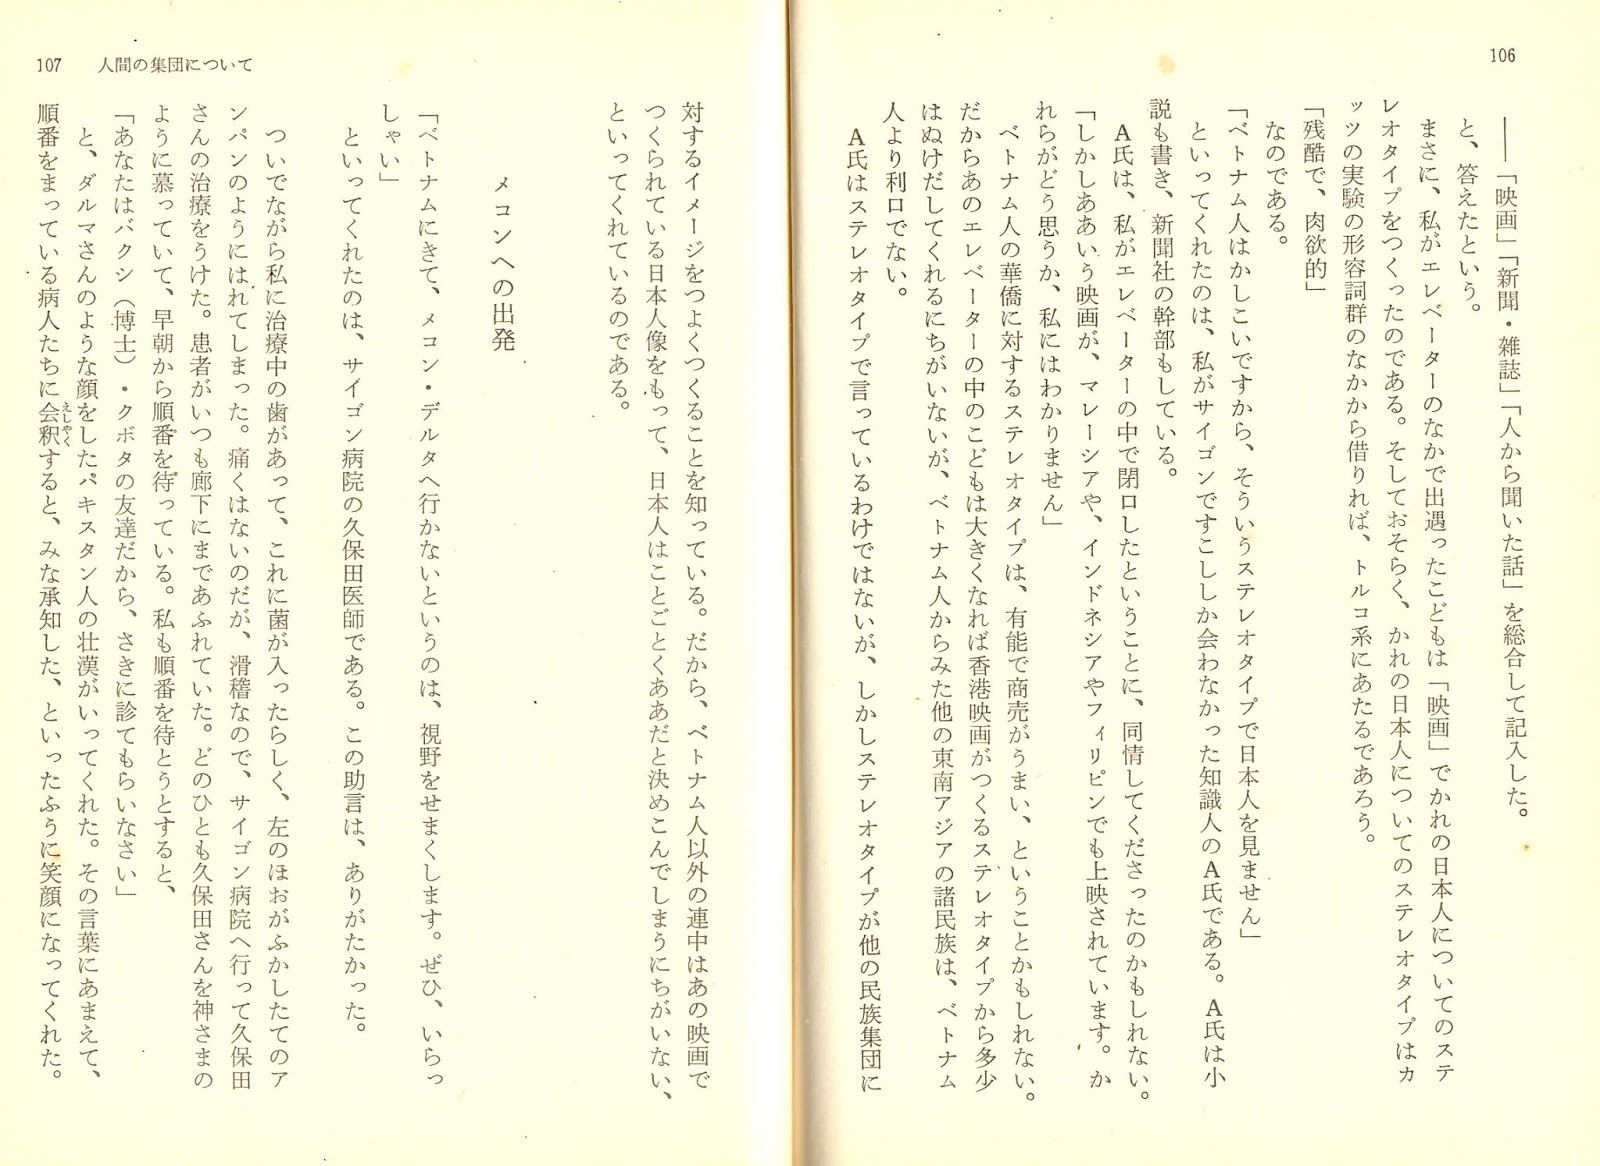 106
――「映画」「新聞・雑誌」「人から聞いた話」を総合して記入した。
と、答えたという。
まさに、私がエレベーターのなかで出遇ったこどもは「映画」でかれの日本人についてのステ
レオタイプをつくったのである。そしておそらく、かれの日本人についてのステレオタイプはカ
ッツの実験の形容詞群のなかから借りれば、トルコ系にあたるであろう。
「残酷で、肉欲的」
なのである。
「ベトナム人はかしこいですから、そういうステレオタイプで日本人を見ません」
といってくれたのは、私がサイゴンですこししか会わなかった知識人のA氏である。A氏は小
説も書き、新聞社の幹部もしている。
A氏は、私がエレベーターの中で閉口したということに、同情してくださったのかもしれない。
「しかしああいう映画が、マレーシアや、インドネシアやフィリピンでも上映されています。か
れらがどう思うか、私にはわかりません」
ベトナム人の華僑に対するステレオタイプは、有能で商売がうまい、ということかもしれない。
だからあのエレベーターの中のこどもは大きくなれば香港映画がつくるステレオタイプから多少
はぬけだしてくれるにちがいないが、ベトナム人からみた他の東南アジアの諸民族は、ベトナム
人より利口でない。
A氏はステレオタイプで言っているわけではないが、しかしステレオタイプが他の民族集団に
107 人間の集団について
対するイメージをつよくつくることを知っている。だから、ベトナム人以外の連中はあの映画で
つくられている日本人像をもって、日本人はことごとくああだと決めこんでしまうにちがいない、
といってくれているのである。
メコンへの出発
「ベトナムにきて、メコン・デルタへ行かないというのは、視野をせまくします。ぜひ、いらっ
しゃい」
といってくれたのは、サイゴン病院の久保田医師である。この助言は、ありがたかった。
ついでながら私に治療中の歯があって、これに菌が入ったらしく、左のほおがふかしたてのア
ンパンのようにはれてしまった。痛くはないのだが、滑稽なので、サイゴン病院へ行って久保田
さんの治療をうけた。患者がいつも廊下にまであふれていた。どのひとも久保田さんを神さまの
ように慕っていて、早朝から順番を待っている。私も順番を待とうとすると、
「あなたはバクシ（博士）・クボタの友達だから、さきに診てもらいなさい」
と、ダルマさんのような顔をしたパキスタン人の壮漢がいってくれた。その言葉にあまえて、
順番をまっている病人たちに会釈えしゃくすると、みな承知した、といったふうに笑顔になってくれた。